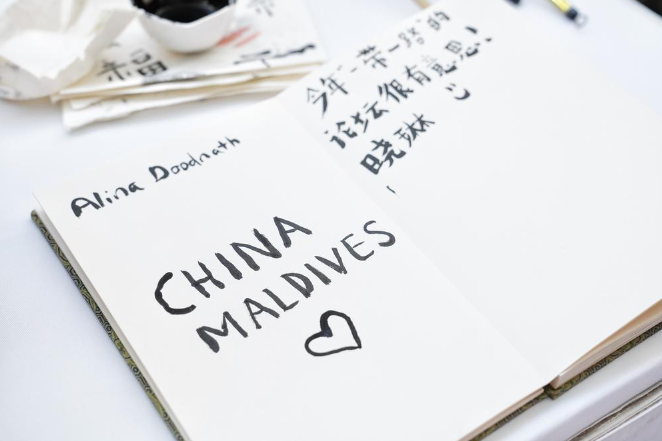 福
Alina Doodnath
CHINA
MALDIVES
今年一带一路的
论坛很有意思!
晓琳